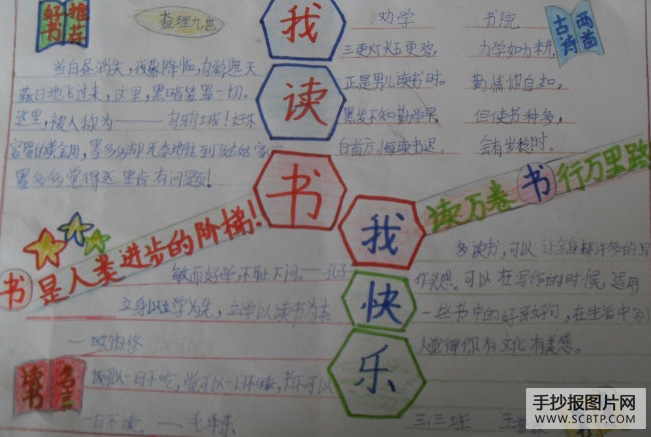 好书
推荐
查理九世
当白昼消失，夜幕降临，
这里，黑暗笼罩一切。
这里，被人称为——
墨多多觉得这里肯有问题！
我
读
书
我
快
乐
劝学
三更灯火五更鸡，
正是男儿读书时。
黑发不知勤学早，
白首方悔读书迟。
书院
力学如力耕，
勤惰你自知。
但使书种多，
会有岁稔时。
古诗
两首
读万卷书行万里路
书是人类进步的阶梯！
敏而好学，不耻下问。——孔子
立身以立学为先，立学以读书为本
——欧阳修
我可以一日不吃，觉可以一日不睡，书不可以
一日不读。——毛泽东
读书
名言
多读书，可以让全身都许多的写
作灵感。可以在写作的时候，运用
一些书中的好词好句，在生活中
人觉得你有文化有美感。
三.三班
手抄报图片网
WWW.SCBTP.COM